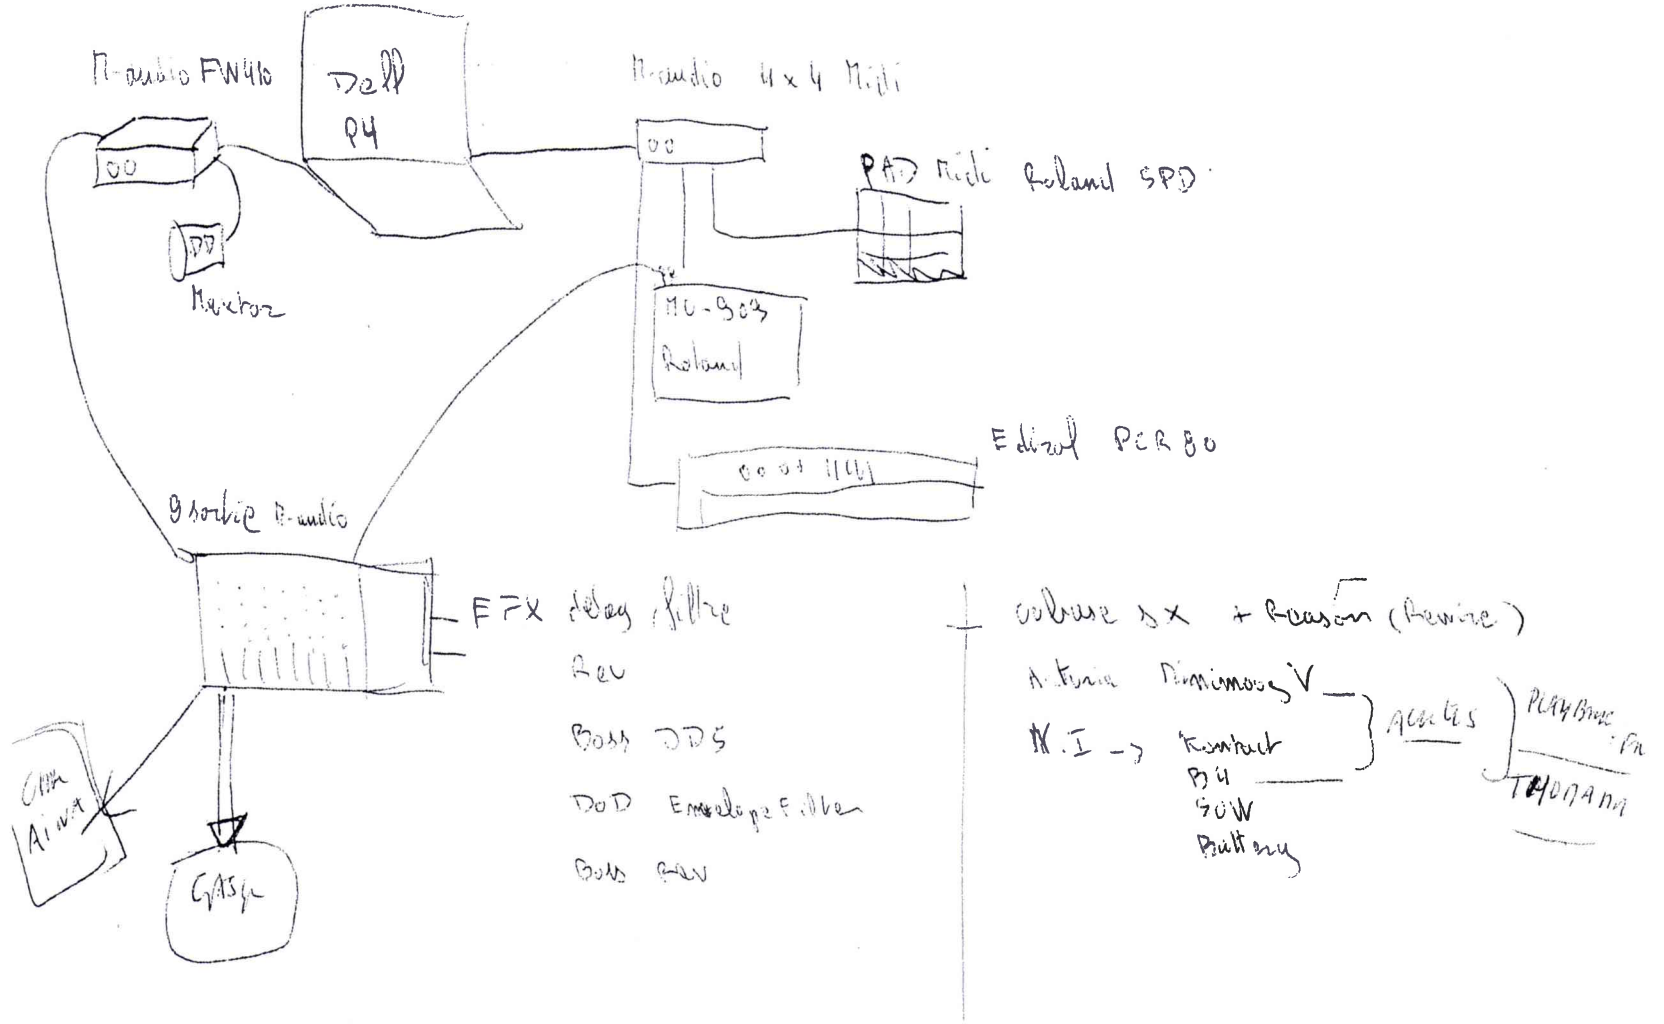 M-audio FW410
Dell
P4
M-audio 4x4 Midi
PAD Midi Roland SPD
Monitor
MC-909
Roland
Edirol PCR 80
9 sortie M-audio
EFX delay, filtre
Rev
Boss DD5
DOD Envelope Filter
Boss Rev
Cubase SX + Reason (Rewire)
Arturia Minimoog V
N.I → Kontact
B4
Battery
THOMANN